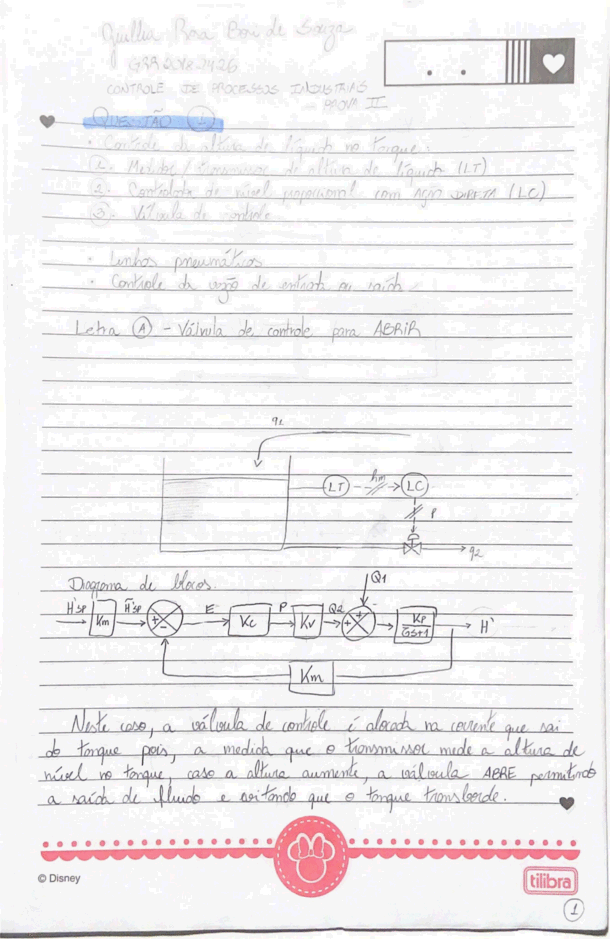 Giullia Rosa Boni de Souza
GRR20182426
CONTROLE DE PROCESSOS INDUSTRIAIS
- PROVA II
QUESTÃO 1
• Controle da altura de líquido no tanque:
1. Medidor / transmissor de altura de líquido (LT)
2. Controlador de nível proporcional com AÇÃO DIRETA (LC)
3. Válvula de controle
• Linhas pneumáticas
• Controle da vazão de entrada ou saída
Letra A - Válvula de controle para ABRIR
q1
LT hm LC
P
q2
Diagrama de blocos.
Q1
H'sp Km H'sp E Kc P Kv Q2 Kp H'
+ - + - ζs+1
Km
Neste caso, a válvula de controle é alocada na corrente que sai
do tanque pois, a medida que o transmissor mede a altura de
nível no tanque, caso a altura aumente, a válvula ABRE permitindo
a saída de fluido e evitando que o tanque transborde.
© Disney
tilibra
1